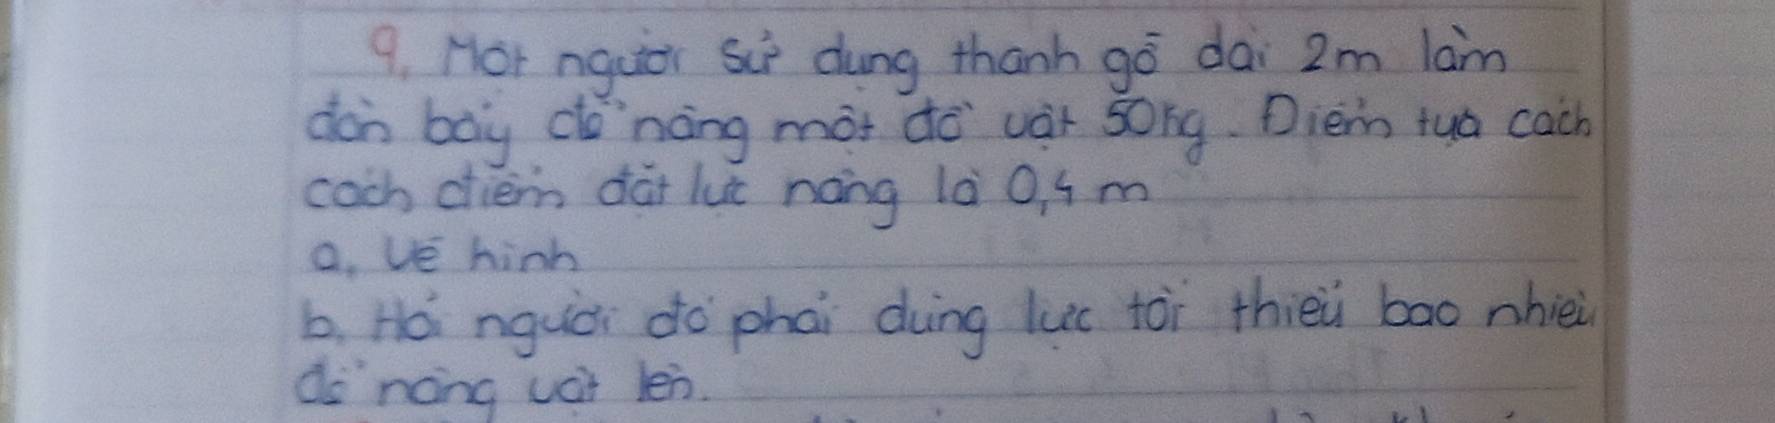 9. Một người sử dụng thanh gỗ dài 2m làm
đòn bẩy để nâng một đồ vật 50kg. Điểm tựa cách
cách điểm đặt lực nâng là 0,4 m
a. Vẽ hình
b. Hỏi người đó phải dùng lực tối thiểu bao nhiêu
để nâng vật lên.